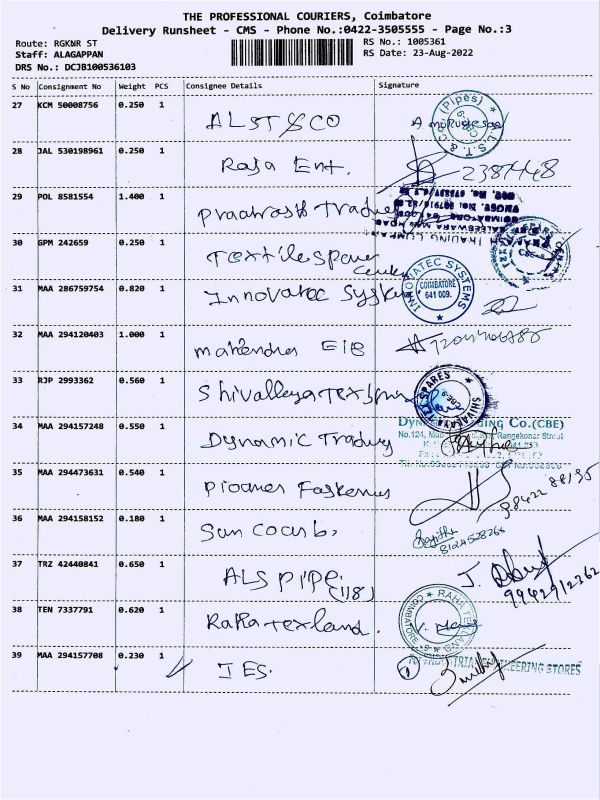 THE PROFESSIONAL COURIERS, Coimbatore
Delivery Runsheet - CMS - Phone No.:0422-3505555 - Page No.:3
Route: RGKNR ST RS No.: 1005361
Staff: ALAGAPPAN RS Date: 23-Aug-2022
DRS No.: DCJB100536103
S No Consignment No Weight PCS Consignee Details Signature
27 KCM 50008756 0.250 1 ALST & CO
28 JAL 530198961 0.250 1 Raja Ent.
29 POL 8581554 1.400 1
30 GPM 242659 0.250 1 Textile spares
31 MAA 286759754 0.820 1 Innovatec INNOVATEC SYSTEMS COIMBATORE 641 009.
32 MAA 294120403 1.000 1 Mahendra Ele
33 RJP 2993362 0.560 1 SHIVALAYA TEX SPARES CBE-9
34 MAA 294157248 0.550 1 Dynamic Trading Co.(CBE)
No.124, Rangekonar Street
35 MAA 294473631 0.540 1 98422 88195
36 MAA 294158152 0.180 1 Sun Coarb.
37 TRZ 42440841 0.650 1 ALS PIPE (118) 9942912362
38 TEN 7337791 0.620 1 Raha texland. COIMBATORE-9
39 MAA 294157708 0.230 1 IES. INDUSTRIAL ENGINEERING STORES